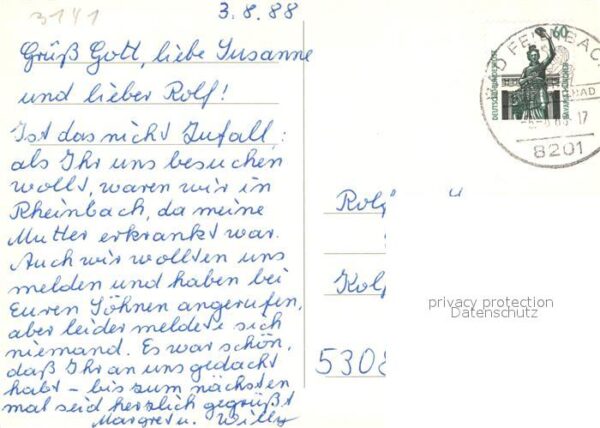 3141
3.8.88
Grüß Gott, liebe Susanne
und lieber Rolf!
Ist das nicht Zufall,:
als Ihr uns besuchen
wollt, waren wir in
Rheinbach, da meine
Mutter erkrankt war.
Auch wir wollten uns
melden und haben bei
Euren Söhnen angerufen,
aber leider meldete sich
niemand. Es war schön,
daß Ihr an uns gedacht
habt – bis zum nächsten
mal seid herzlich gegrüßt
Margret u. Willy
60
DEUTSCHE BUNDESPOST
BAVARIA MÜNCHEN
BAD FEILNBACH
8201
Rolf
Kolp
5308
privacy protection
Datenschutz